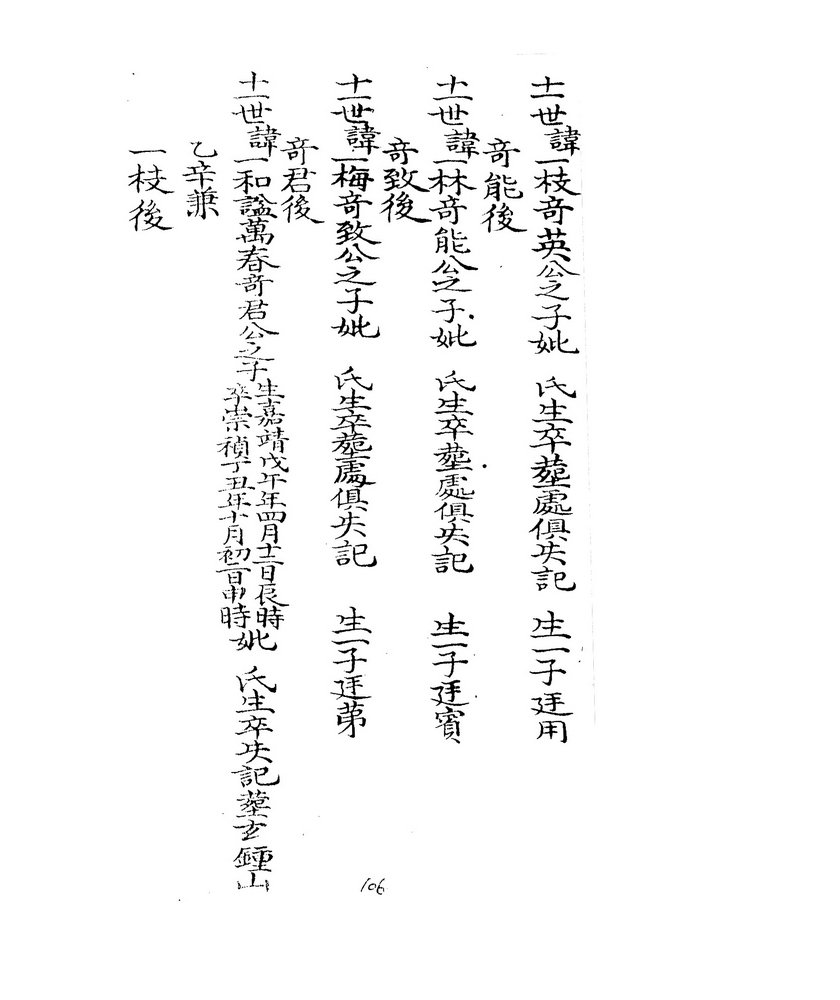 十一世諱一枝奇英公之子妣　氏生卒塟處俱失記　生一子廷用
奇能後
十一世諱一林奇能公之子妣　氏生卒塟處俱失記　生一子廷賓
奇致後
十一世諱一梅奇致公之子妣　氏生卒塟處俱失記　生一子廷苐
奇君後
十一世諱一和諡萬春奇君公之子
生嘉靖戊午年四月十二日辰時
卒崇禎丁丑年十月初一日申時
妣　氏生卒失記塟玄鍾山
乙辛兼
一枝後
106